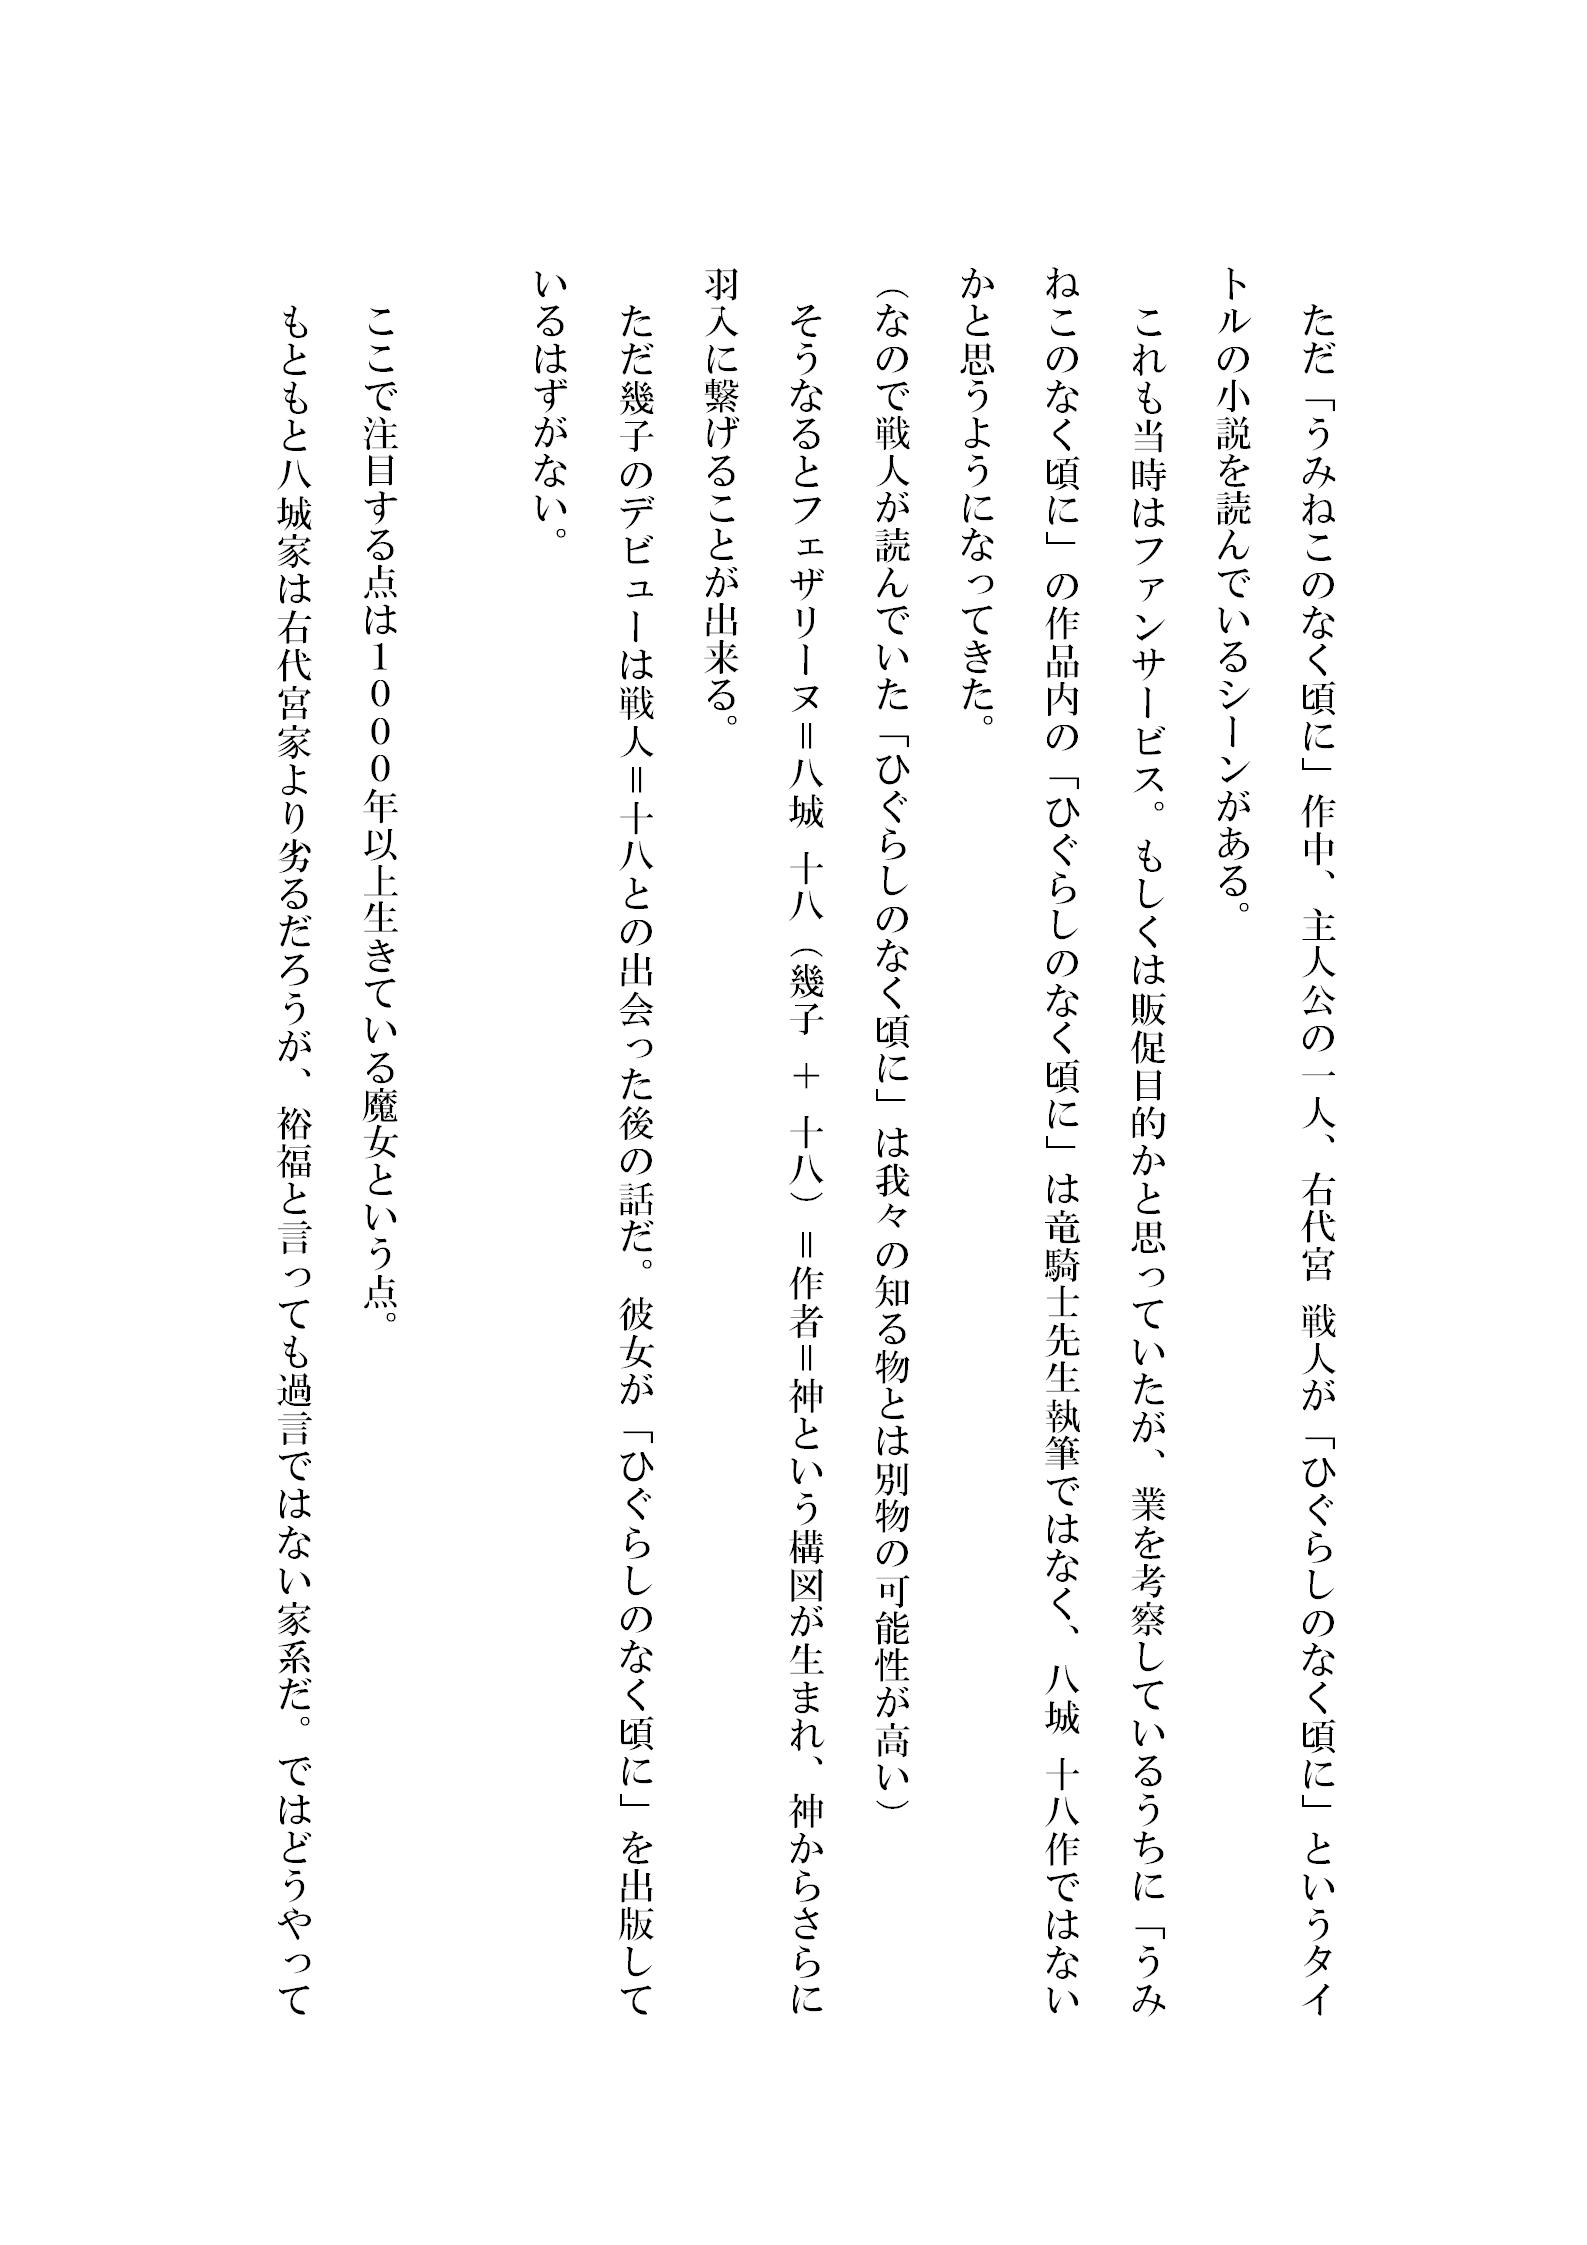 ただ「うみねこのなく頃に」作中、主人公の一人、右代宮 戦人が「ひぐらしのなく頃に」というタイ
トルの小説を読んでいるシーンがある。
これも当時はファンサービス。もしくは販促目的かと思っていたが、業を考察しているうちに「うみ
ねこのなく頃に」の作品内の「ひぐらしのなく頃に」は竜騎士先生執筆ではなく、八城 十八作ではない
かと思うようになってきた。
（なので戦人が読んでいた「ひぐらしのなく頃に」は我々の知る物とは別物の可能性が高い）
そうなるとフェザリーヌ＝八城 十八（幾子 ＋ 十八）＝作者＝神という構図が生まれ、神からさらに
羽入に繋げることが出来る。
ただ幾子のデビューは戦人＝十八との出会った後の話だ。彼女が「ひぐらしのなく頃に」を出版して
いるはずがない。
ここで注目する点は１０００年以上生きている魔女という点。
もともと八城家は右代宮家より劣るだろうが、裕福と言っても過言ではない家系だ。ではどうやって